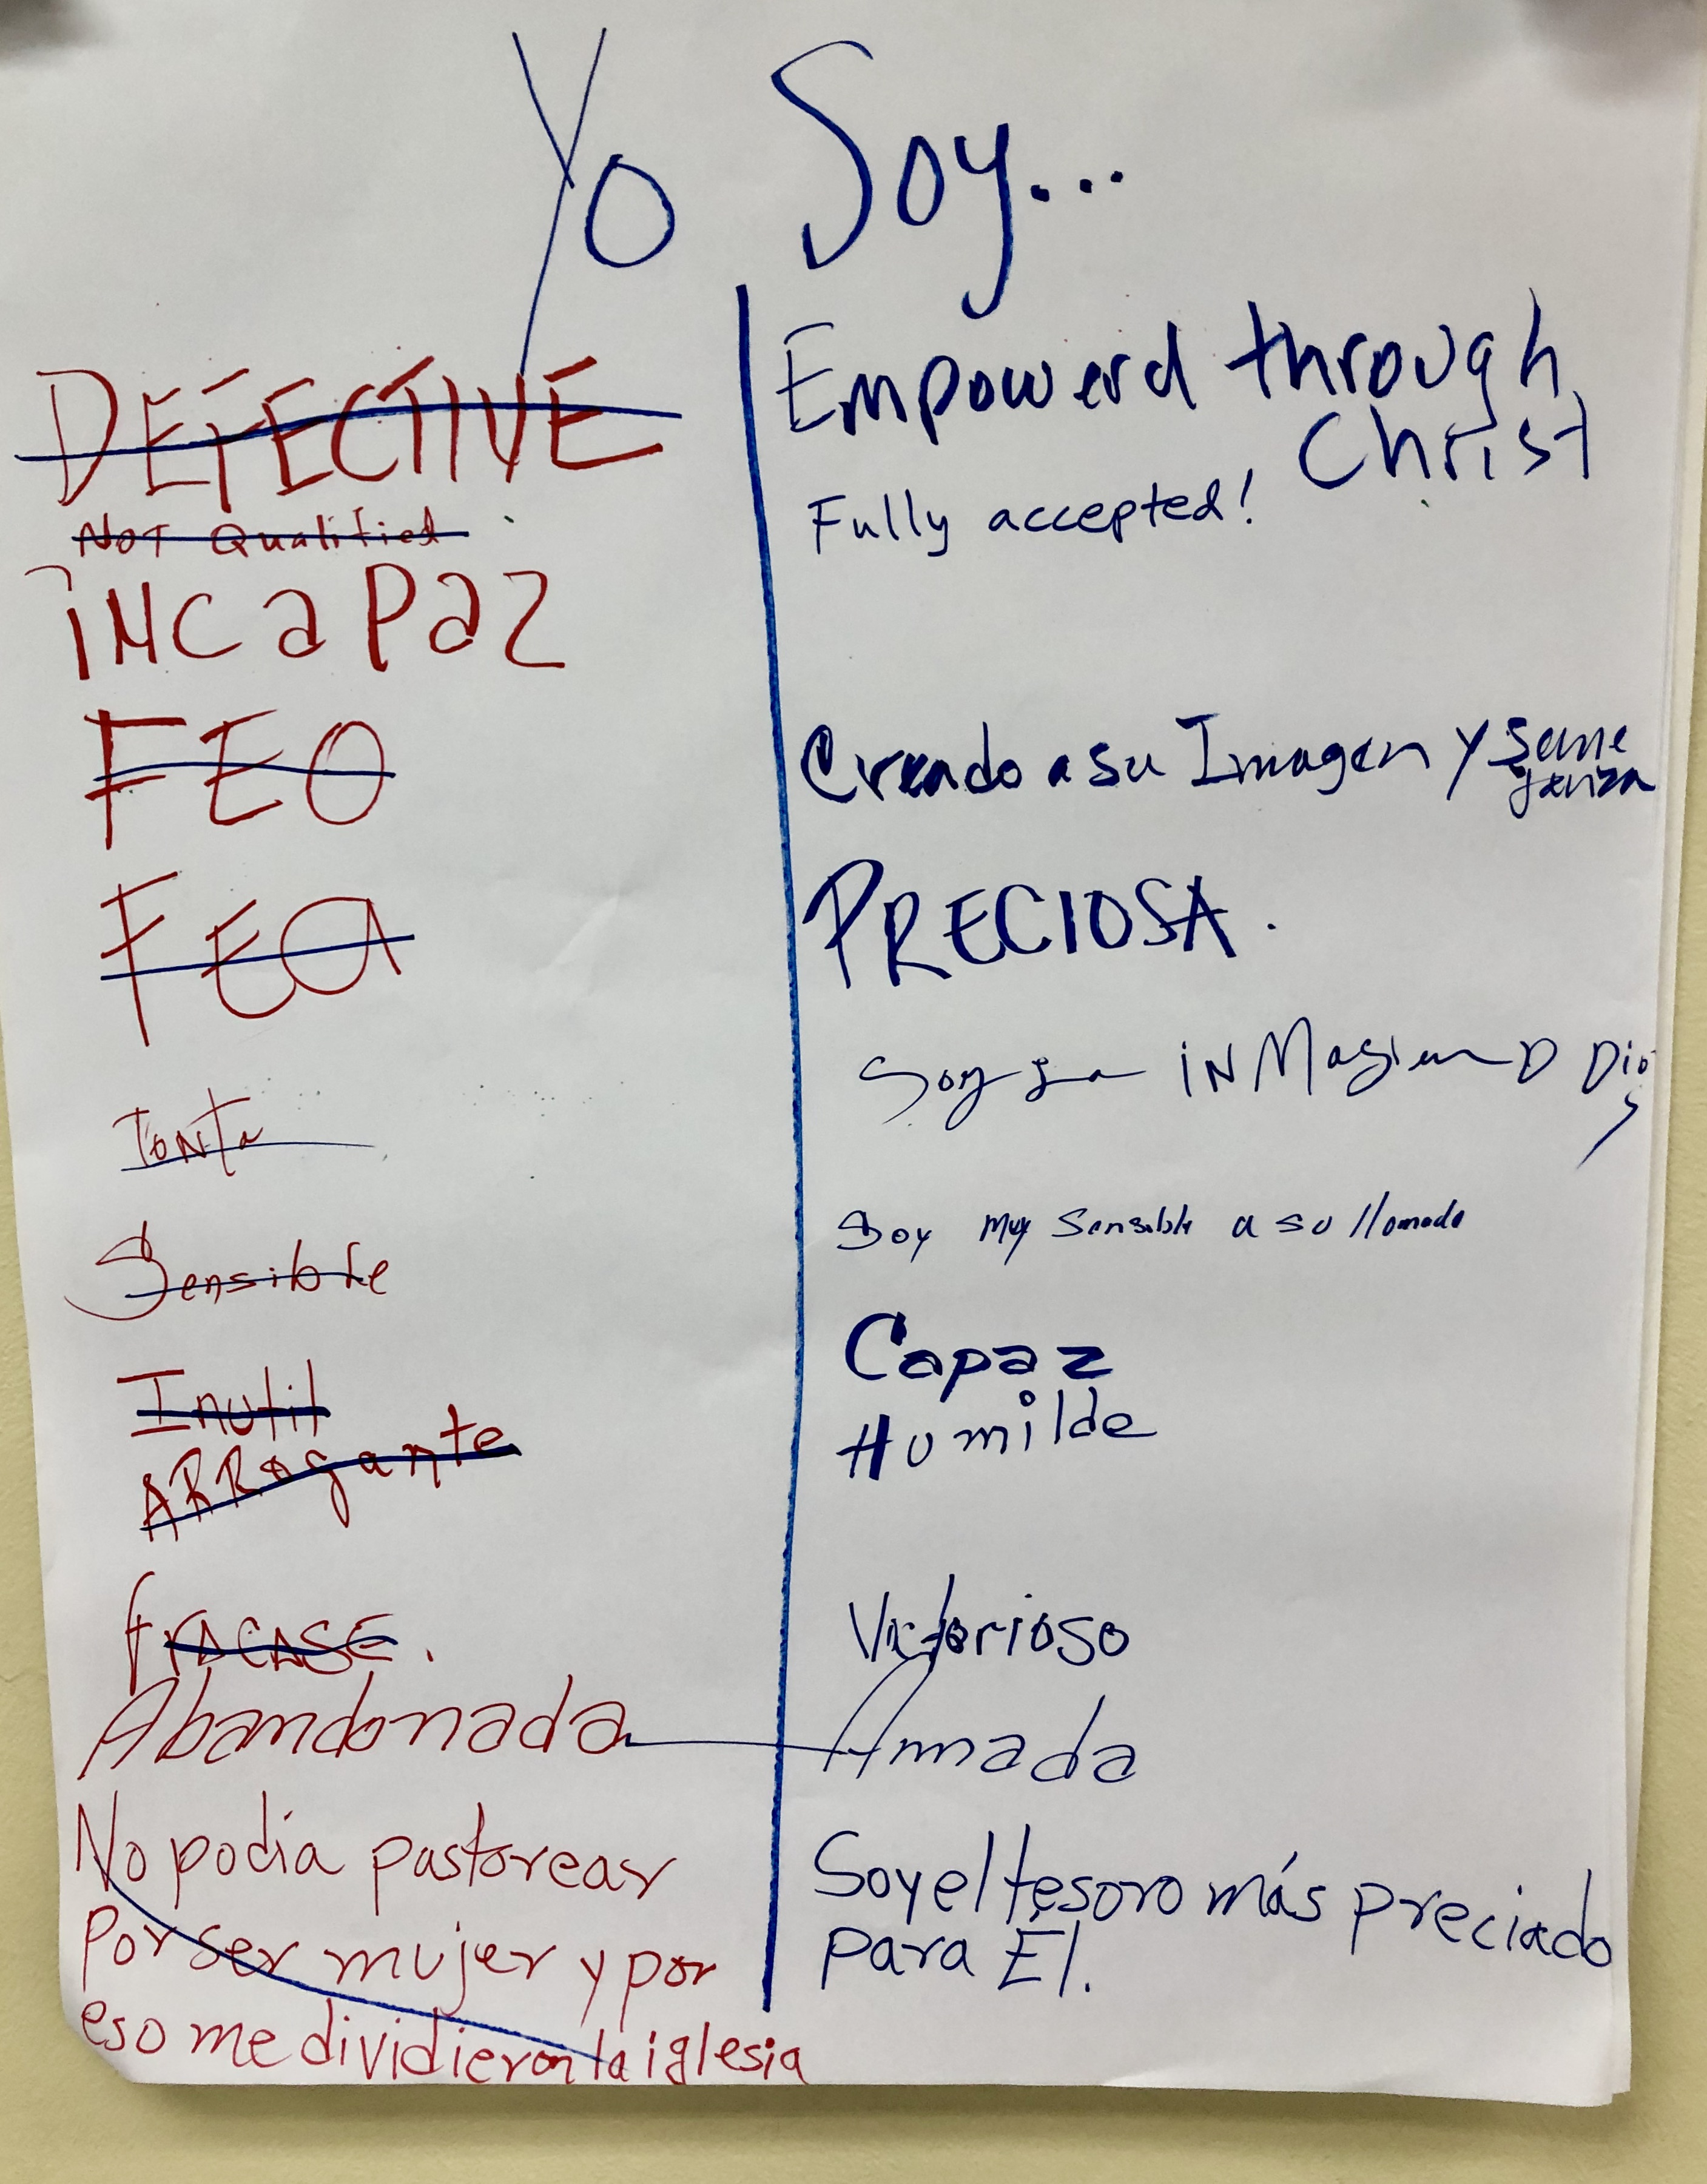 Yo Soy...
DEFECTIVE
Not Qualified
iNcapaz
FEO
FEA
TONTa
Sensible
Inutil
ARRogante
fRACASE.
Abandonada
No podia pastorear
Por ser mujer y por
eso me dividieron la iglesia
Empowerd through
Christ
Fully accepted!
Creado a su Imagen y seme
janza
PRECIOSA.
Soy la iNMagien D Dios
Soy muy Sensible a su llamado
Capaz
Humilde
Victorioso
Amada
Soy el tesoro más preciado
para Él.